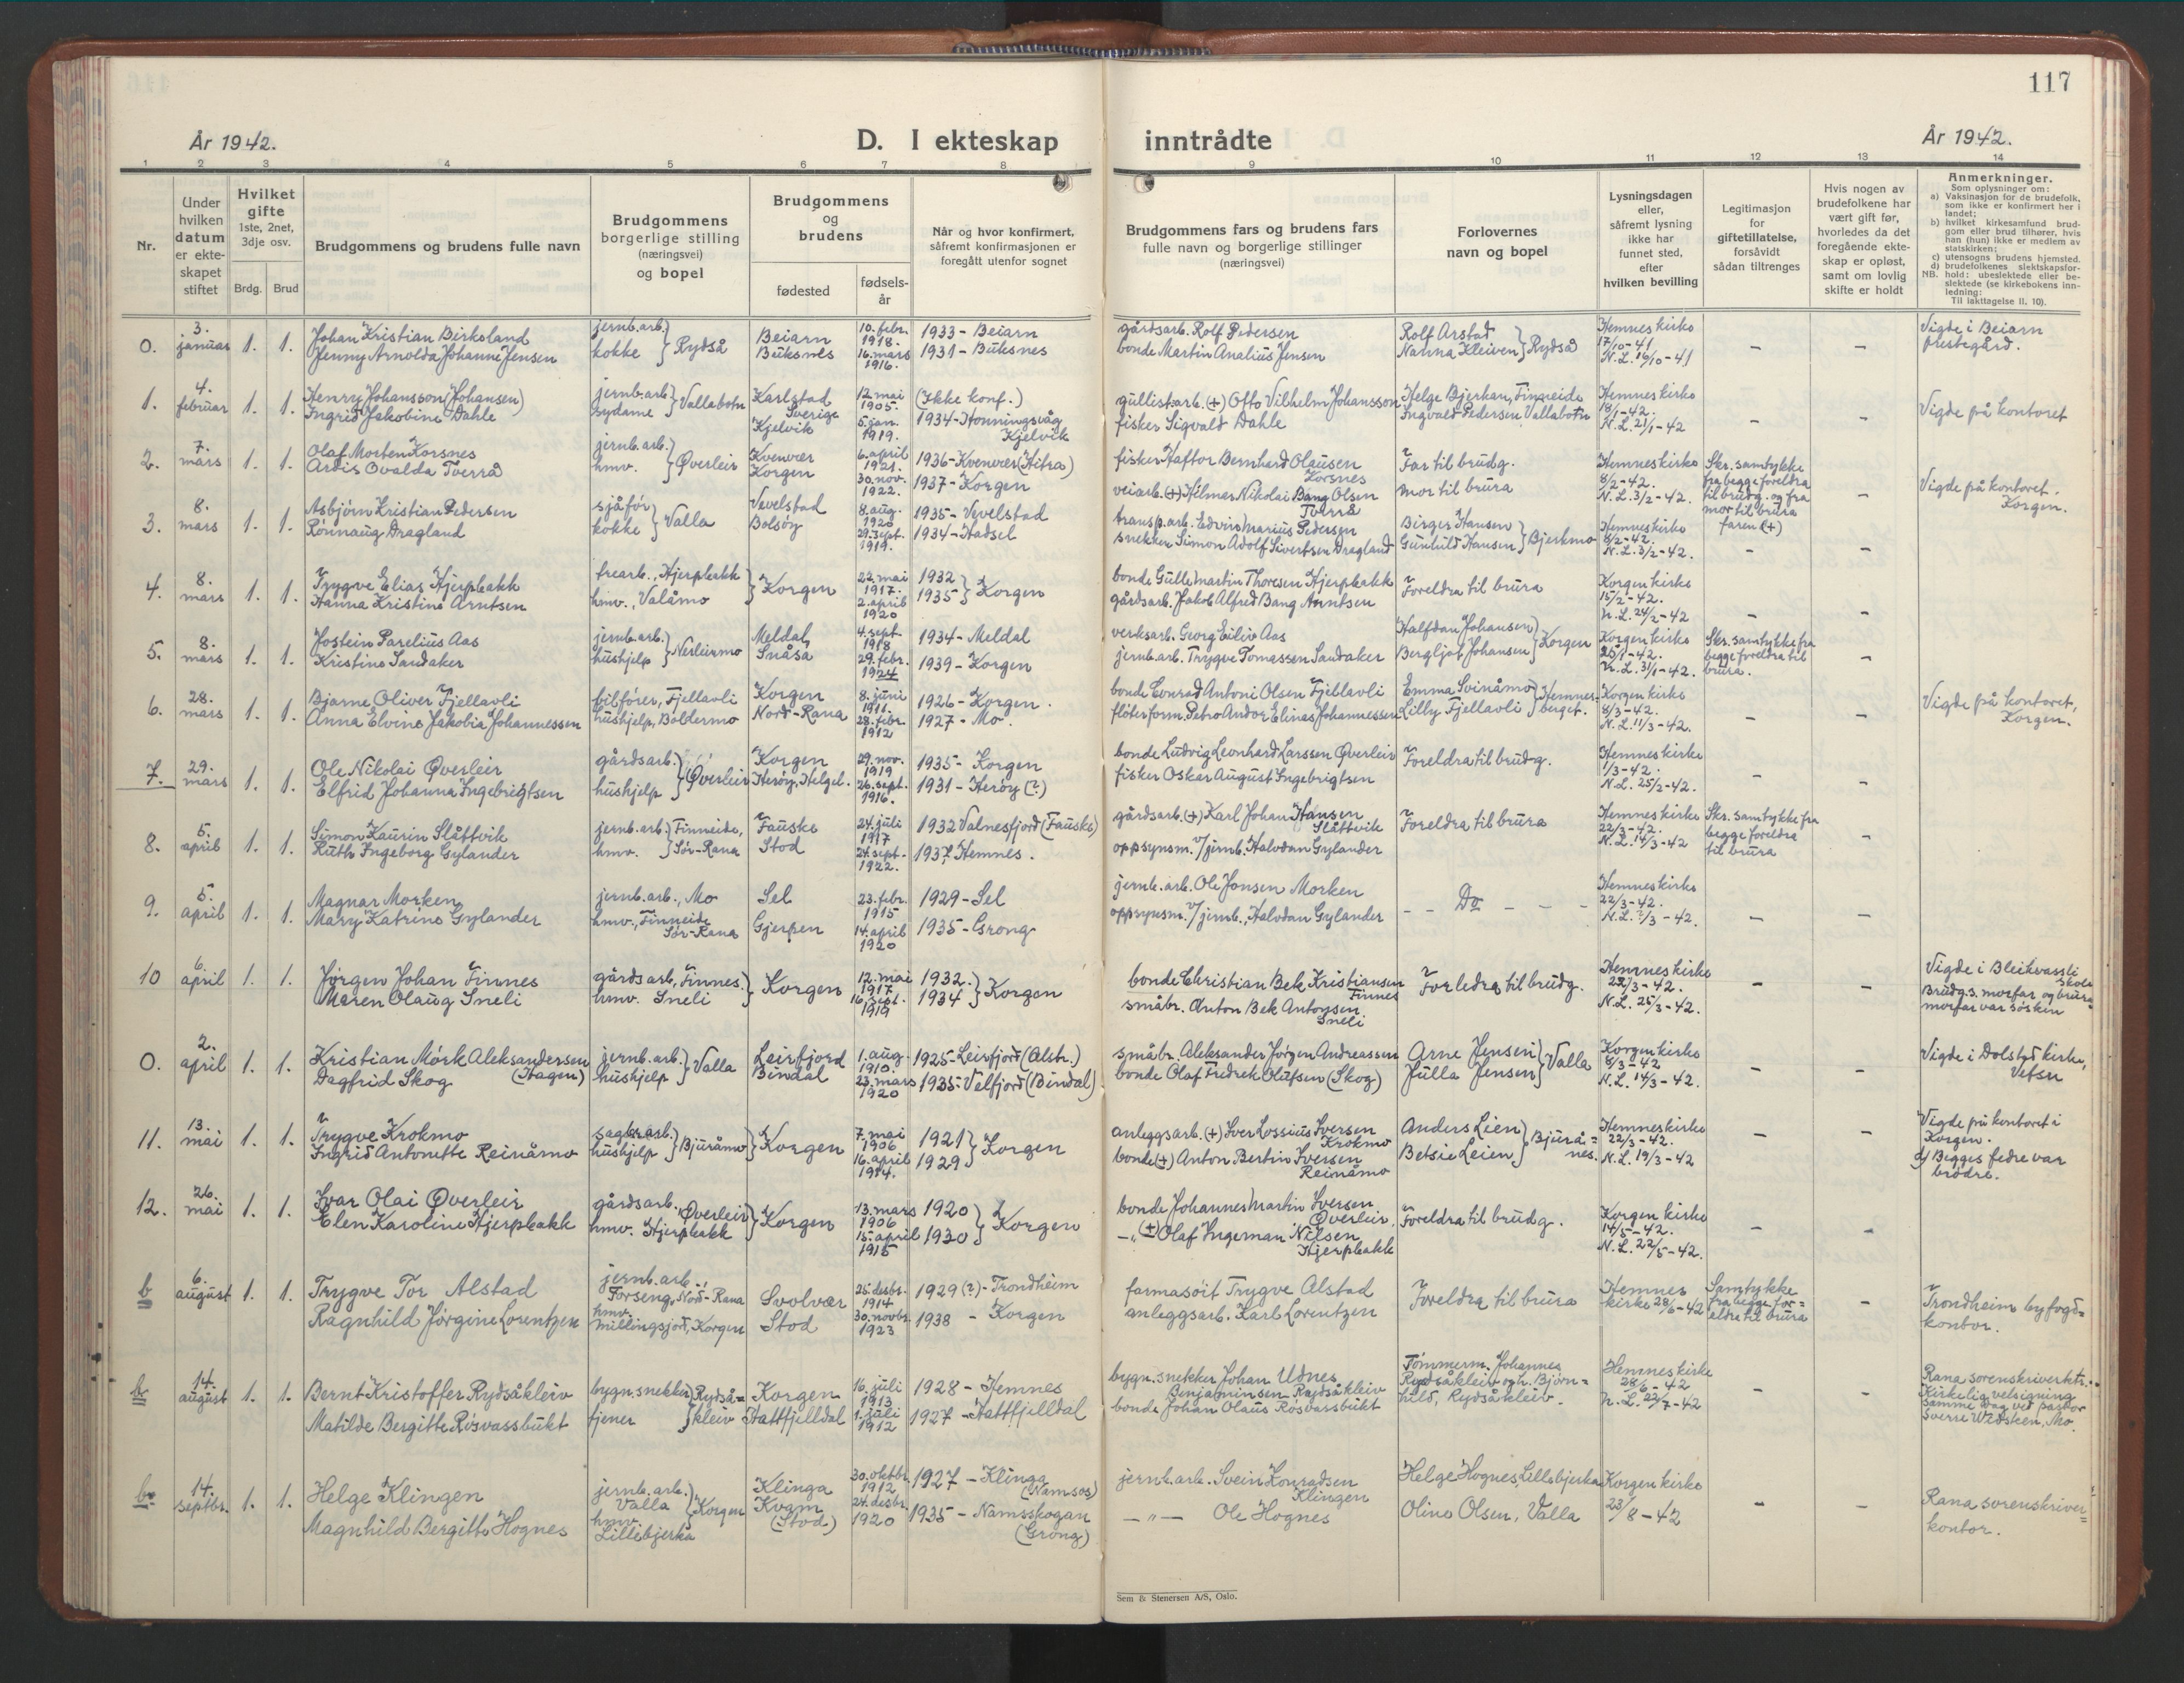 117
År 1942.
D. I ekteskap inntrådte
År 1942.
1 2 3 4 5 6 7 8 9 10 11 12 13 14
Nr.
Under hvilken datum er ekteskapet stiftet
Hvilket gifte 1ste, 2net, 3dje osv.
Brdg. Brud
Brudgommens og brudens fulle navn
Brudgommens borgerlige stilling (næringsvei) og bopel
Brudgommens og brudens
fødested
fødselsår
Når og hvor konfirmert, såfremt konfirmasjonen er foregått utenfor sognet
Brudgommens fars og brudens fars fulle navn og borgerlige stillinger (næringsvei)
Forlovernes navn og bopel
Lysningsdagen eller, såfremt lysning ikke har funnet sted, efter hvilken bevilling
Legitimasjon for giftetillatelse, forsåvidt sådan tiltrenges
Hvis nogen av brudefolkene har vært gift før, hvorledes da det foregående ekteskap er opløst, samt om lovlig skifte er holdt
Anmerkninger.
Som oplysninger om:
a) Vaksinasjon for de brudefolk, som ikke er konfirmert her i landet;
b) hvilket kirkesamfund brudgom eller brud tilhører, hvis han (hun) ikke er medlem av statskirken;
c) utensogns brudens hjemsted.
d) brudefolkenes slektskapsforhold: ubeslektede eller beslektede (se kirkebokens innledning:
NB. Til iakttagelse II, 10).
0. 3. januar 1. 1. Johan Kristian Birkeland jernb.arb. } Rydså Beiarn 10. febr. 1918. 1933 - Beiarn gårdsarb. Rolf Pedersen Rolf Arstad } Rydså Hemnes kirke 17/10-41 - - Vigde i Beiarn
Jenny Arnolda Johanne Jensen kokke Buksnes 16. mars 1916. 1931 - Buksnes bonde Martin Analius Jensen Nanna Kleiven N.L. 16/10-41 prestegård.
1. 4. februar 1. 1. Henry Johansson (Johansen) jernb.arb. } Vallabotn Karlstad Sverige 12 mai 1905. (Ikke konf.) gullistarb. (+) Otto Vilhelm Johansson Helge Bjerkan, Finneide Hemnes kirke 18/1-42. - Vigde på kontoret
Ingrid Jakobine Dahle sydame Kjelvik 5. jan. 1919. 1934 - Honningsvåg Kjelvik fisker Sigvald Dahle Ingvald Pedersen Vallabotn N.L. 21/1-42
2. 7. mars 1. 1. Olaf Morten Korsnes jernb.arb. } Øverleir Kvenvær 6. april 1921. 1936 - Kvenvær (Hitra) fisker Haftor Bernhard Olausen Korsnes Far til brudg. Hemnes kirke 8/2-42. Skr. samtykke fra begge foreldra til brudg. og fra mor til brura faren (+) - Vigde på kontoret.
Ardis Ovalda Tverrå hmv. Korgen 30. nov. 1922. 1937 - Korgen veiarb. (+) Hilmar Nikolai Bang Olsen Tverrå Mor til brura N.L. 3/2-42. Korgen.
3. 8. mars 1. 1. Asbjørn Kristian Pedersen sjåfør } Valla Vevelstad 8. aug. 1920 1935 - Vevelstad transp.arb. Edvin Marius Pedersen Birger Hansen } Bjerkmo Hemnes kirke 8/2-42. - -
Rønnaug Dragland kokke Bolsøy 29. sept. 1919. 1934 - Hadsel snekker Simon Adolf Sivertsen Dragland Gunhild Hansen N.L. 3/2-42.
4. 8. mars 1. 1. Trygve Elias Hjerpbakk trearb., Hjerpbakk } Korgen 22. mai 1917. 1932 } Korgen bonde Gulle Martin Thoresen Hjerpbakk Foreldra til brura Korgen kirke 15/2-42. - -
Hanna Kristine Arntsen hmv., Valåmo 2. april 1920 1935 gårdsarb. Jakob Alfred Bang Arntsen N.L. 24/2-42
5. 8. mars 1. 1. Jostein Parelius Aas jernb.arb. } Nerleirmo Meldal 4. sept. 1918 1934 - Meldal verksarb. Georg Eiliv Aas Halfdan Johansen } Korgen Korgen kirke 25/1-42. Skr. samtykke fra begge foreldra til brura. -
Kristine Sandaker hushjelp Snåsa 29. febr. 1924 1939 - Korgen jernb.arb. Trygve Tomassen Sandaker Bergljot Johansen N.L. 31/1-42.
6. 28. mars 1. 1. Bjarne Oliver Fjellavli bilfører, Fjellavli Korgen 8. juni 1911. 1926 - Korgen. bonde Conrad Antoni Olsen Fjellavli Emma Svinåmo } Hemnesberget. Korgen kirke 8/3-42. - - Vigde på kontoret,
Anna Elvine Jakobia Johannessen hushjelp, Boldermo Nord-Rana 28. febr. 1912 1927 - Mo. fløterform. Petro Andor Elinas Johannessen Lilly Fjellavli N.L. 11/3-42. Korgen.
7. 29. mars 1. 1. Ole Nikolai Øverleir gårdsarb. } Øverleir Korgen 29. nov. 1919 1935 - Korgen bonde Ludvig Leonhard Larssen Øverleir Foreldra til brudg. Hemnes kirke 1/3-42. - -
Elfrid Johanna Ingebrigtsen hushjelp Herøy, Helgel. 26. sept. 1916. 1931 - Herøy (?) fisker Oskar August Ingebrigtsen N.L. 25/2-42.
8. 5. april 1. 1. Simon Kaurin Slåttvik jernb.arb. } Finneide, Sør-Rana Fauske 24. juli 1917 1932 Valnesfjord (Fauske) gårdsarb. (+) Karl Johan Hansen Slåttvik Foreldra til brura Hemnes kirke 22/3-42. Skr. samtykke fra begge foreldra til brura -
Ruth Ingeborg Gylander hmv. Stod 24. sept. 1922. 1937 Hemnes. oppsynsm. v/jernb. Halvdan Gylander N.L. 14/3-42
9. 5. april 1. 1. Magnar Morken jernb.arb., Mo Sel 23. febr. 1915 1929 - Sel jernb.arb. Ole Jonsen Morken - - Do - - - Hemnes kirke 22/3-42. - -
Mary Katrine Gylander hmv., Finneide Sør-Rana Gjerpen 14. april 1920 1935 - Grong oppsynsm. v/jernb., Halvdan Gylander N.L. ?/3-42.
10 6. april 1. 1. Jørgen Johan Finnes gårdsarb, Finnes } Korgen 12. mai 1917 1932 } Korgen bonde Christian Bek Kristiansen Finnes Foreldra til brudg. Hemnes kirke 22/3-42. - - Vigde i Bleikvassli skole
Maren Olaug Sneli hmv. Sneli 16. sept. 1919 1934 småbr. Anton Bek Antonsen Sneli N.L. 25/3-42. Brudg.s. morfar og bruras morfar var søsken
0. 2. april 1. 1. Kristian Mørk Aleksandersen (Hagen) jernb.arb. } Valla Leirfjord 1. aug. 1910. 1925 - Leirfjord (Alstr.) småbr. Aleksander Jørgen Andreassen Arne Jensen } Valla Korgen kirke 8/3-42 - - Vigde i Dolstad kirke,
Dagfrid Skog hushjelp Bindal 23. mars 1920 1935 - Velfjord (Bindal) bonde Olaf Fredrek Olufsen (Skog) Julla Jensen N.L. 14/3-42. Vefsn
11. 13. mai 1. 1. Trygve Krokmo sagbr.arb. } Bjuråmo } Korgen 7. mai 1906 1921 } Korgen anleggsarb. (+) Iver Lossius Iversen Krokmo Anders Lien } Bjurånes. Hemnes kirke 22/3-42. - - Vigde på kontoret i Korgen.
Ingrid Antonette Reinåmo hushjelp 16. april 1914. 1929 bonde (+) Anton Bertin Iversen Reinåmo Betsie Leien N.L. 19/3-42 d) Begges fedre var brødre.
12. 26. mai 1. 1. Ivar Olai Øverleir gårdsarb. Øverleir } Korgen 13. mars 1906 1920 } Korgen bonde Johannes Martin Iversen Øverleir Foreldra til brudg. Korgen kirke 14/5-42. - -
Elen Karoline Hjerpbakk hmv. Hjerpbakk 15. april 1915 1930 -"- (+) Olaf Ingeman Nilsen Hjerpbakk N.L. 22/5-42.
b 6. august 1. 1. Trygve Tor Alstad jernb.arb. Forseng, Nord-Rana Svolvær 25. desbr. 1914 1929 (?) - Trondheim farmasøit Trygve Alstad Foreldra til brura Hemnes kirke 28/6-42 Samtykke fra begge foreldre til brura - Trondheim byfogdkontor.
Ragnhild Jørgine Lorentzen hmv. Millingsjord, Korgen Stod 30. novbr. 1923 1938 - Korgen anleggsarb. Karl Lorentzen
b 14. august 1. 1. Bernt Kristoffer Rydsåkleiv bygn.snekker } Rydsåkleiv Korgen 16. juli 1913 1928 - Hemnes bygn.snekker Johan Udnes Benjaminsen Rydsåkleiv Tømmerm. Johannes Rydsåkleiv og h. Bjørnhild, Rydsåkleiv. Hemnes kirke 28/6-42 - - Rana sorenskriverktr.
Matilde Bergitte Røsvassbukt tjener Hattfjelldal 1. juli 1912 1927 - Hattfjelldal bonde Johan Olaus Røsvassbukt N.L. 22/7-42 Kirkelig velsigning samme dag ved pastor Sverre Widsken, Mo.
b. 14. septbr. 1. 1. Helge Klingen jernb.arb. Valla } Korgen Klinga 30. oktbr. 1912 1927 - Klinga (Namsos) jernb.arb. Svein Konradsen Klingen Helge Hognes, Lillebjerka Korgen kirke 23/8-42 - - Rana sorenskriverkontor.
Magnhild Bergitte Hognes hmv. Lillebjerka Kvam (Stod) 24. desbr. 1920 1935 - Namsskogan (Grong) -"- Ole Hognes Oline Olsen, Valla
Sem & Stenersen A/S, Oslo.